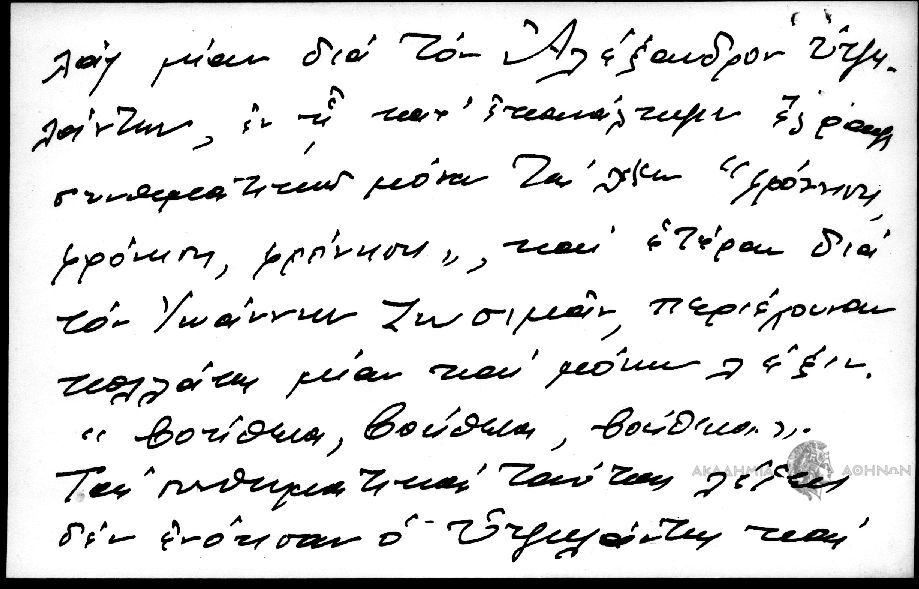 λάς μίαν διά τόν Ἀλέξανδρον Ὑψη-
λάντην, ἐν τῇ κατ' ἐπανάληψιν ἔγραψε
συνθηματικῶς μόνον τάς λέξεις "φρόνησις,
φρόνησις, φρόνησις", καί ἑτέραν διά
τόν Ἰωάννην Ζωσιμᾶν, περιέχουσαν
πολλάκις μίαν καί μόνην λέξιν.
"βοήθεια, βοήθεια, βοήθεια".
Τάς συνθηματικάς ταύτας λέξεις
δέν ἐνόησαν ὁ Ὑψηλάντης καί
ΑΚΑΔΗΜΙΑ ΑΘΗΝΩΝ